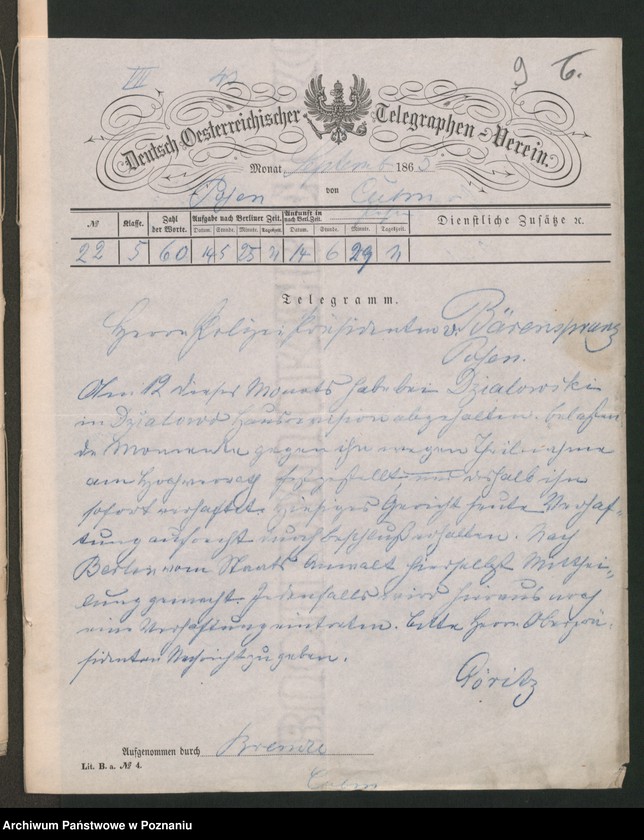 III
9 6.
Deutsch-Oesterreichischer Telegraphen-Verein.
Monat September 1863
Posen von Culm
№ Klasse. Zahl der Worte. Aufgabe nach Berliner Zeit. Ankunft in nach Berl. Zeit. Dienstliche Zusätze ꝛc.
Datum. Stunde. Minute. Tageszeit. Datum. Stunde. Minute. Tageszeit.
22 5 60 14 5 25 N 14 6 29 N
Telegramm.
Herrn Polizei Präsidenten v. Bärensprung
Posen.
Am 12 dieses Monats habe bei Dzialowski
in Dzialowo Hausrevision abgehalten. belasten
de Momente gegen ihn wegen Theilnahme
am Hochverrath festgestellt und deshalb ihn
sofort verhaftet. Hiesiges Gericht heute Verhaf-
tung aufrecht durch Beschluß erhalten. Nach
Berlin vom Staats Anwalt hierselbst Mitthei-
lung gemacht. Jedenfalls wird hieraus noch
eine Verhaftung eintreten. bitte Herrn Oberprä-
sidenten Nachricht zu geben.
Göritz
Aufgenommen durch
Lit. B. a. № 4.
Culm
Archiwum Państwowe w Poznaniu